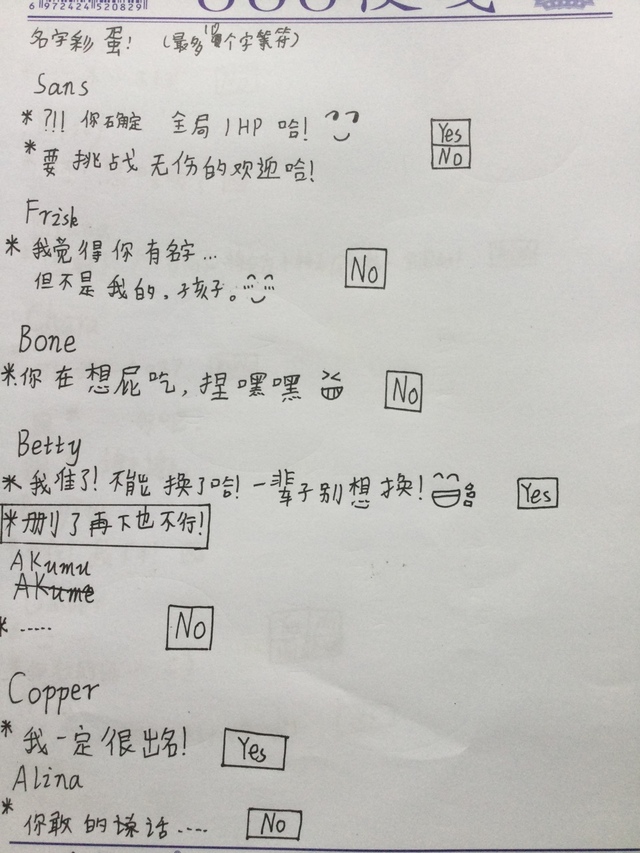 6 972424 520829
名字彩蛋! (最多 个字符)
Sans
* ?!! 你确定 全局 1HP 哈!
Yes
* 要挑战无伤的欢迎哈!
No
Frisk
* 我觉得你有名字...
No
但不是我的,孩子。
Bone
* 你在想屁吃,捏嘿嘿
No
Betty
* 我准了!不能换了哈!一辈子别想换!
Yes
* 删了再下也不行!
AKumu
AKume
* .....
No
Copper
* 我一定很出名!
Yes
Alina
* 你敢的话....
No